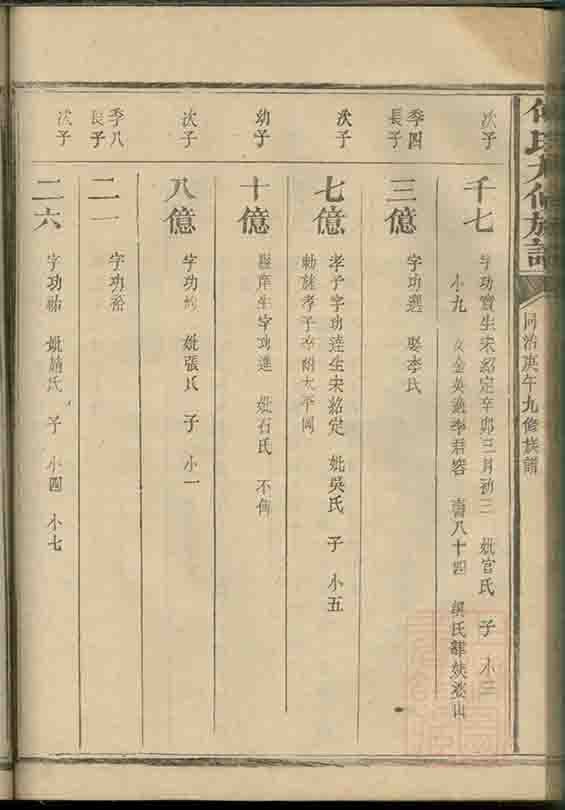 氏九修族譜
同治庚午九修族譜
次子
千七
字功寶生宋紹定辛卯三月初三 妣官氏 子 小三
小九 女金英適李君容 壽八十四 吳氏
季四
長子
三億
字功選 娶李氏
次子
七億
孝子字功達生宋紹定 妣吳氏 子 小五
勅謚孝子 太平
幼子
十億
庠生字功進 妣石氏 不傳
次子
八億
字功 妣張氏 子 小一
季八
長子
二一
字功裕
次子
二六
字功祐 妣趙氏 子 小四 小七